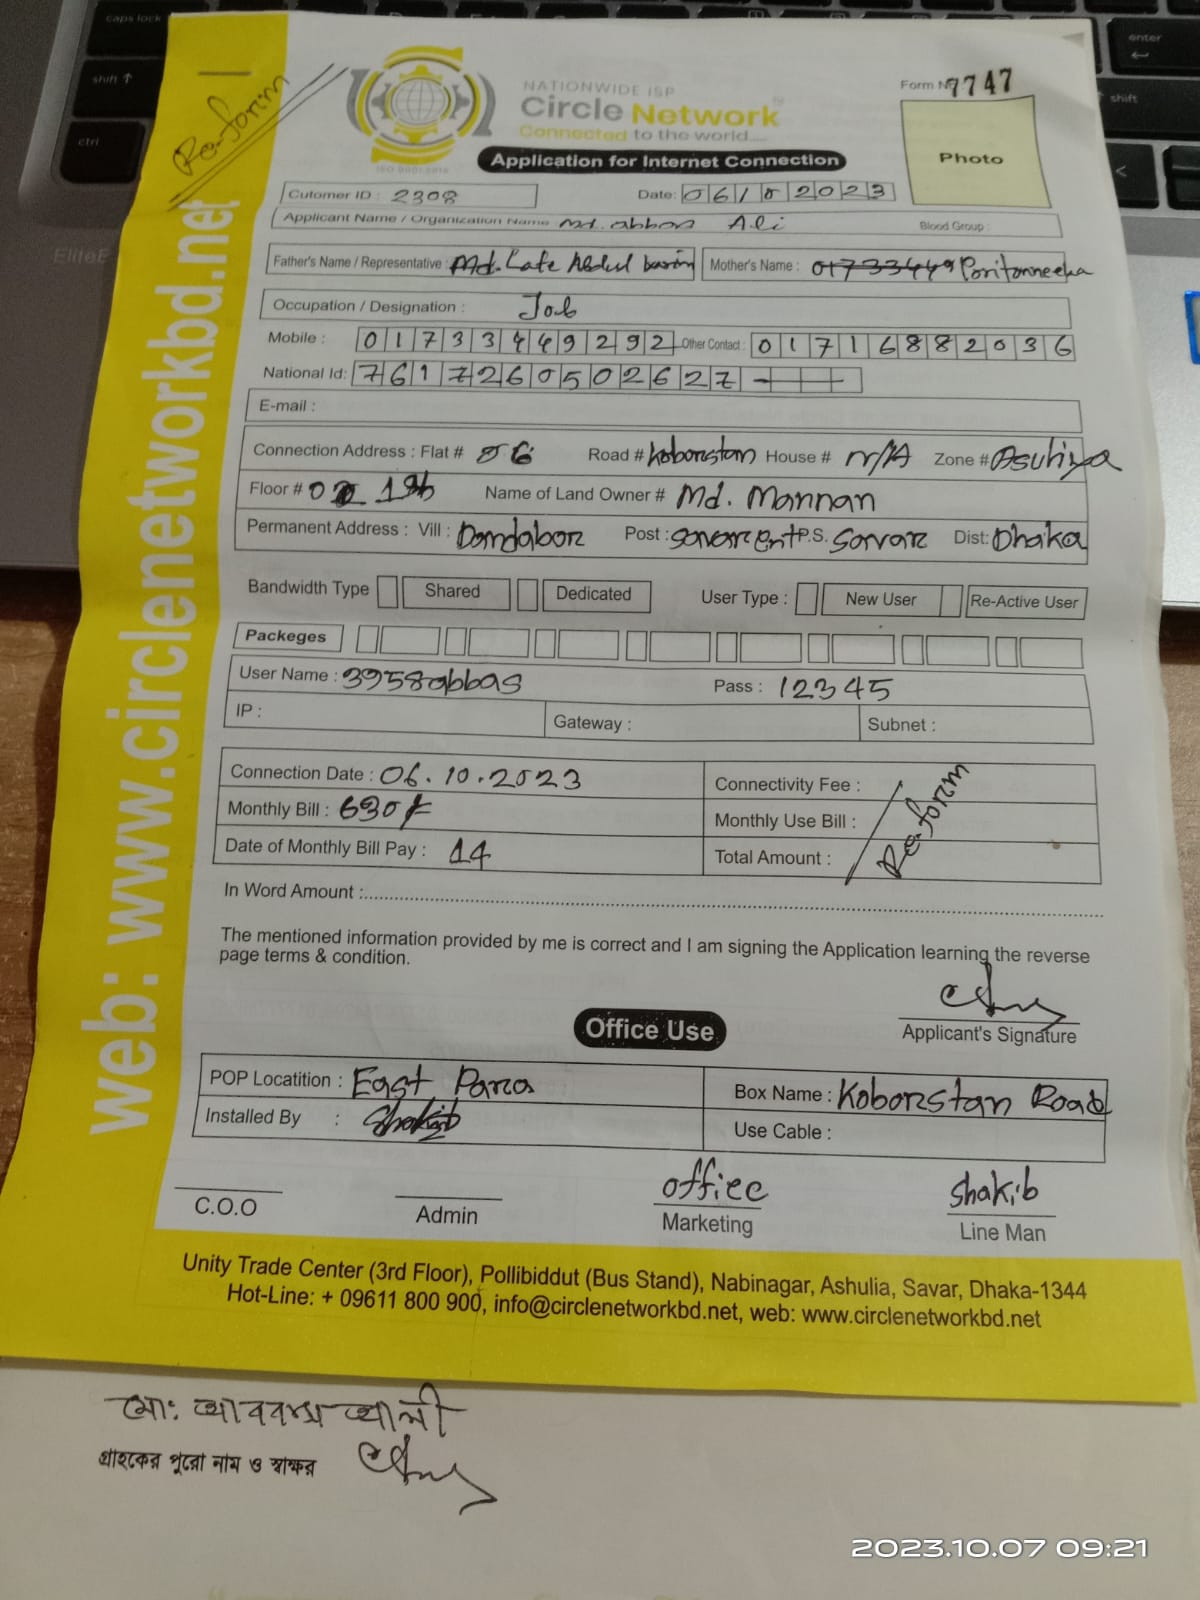 caps lock
enter
shift
shift
ctrl
EliteB
Re-forim
NATIONWIDE ISP
Circle Network
Connected to the world....
ISO 9001:2015
Form № 7747
Application for Internet Connection
Photo
Cutomer ID : 2308
Date: 06/02023
Applicant Name / Organization Name Md. abbas Ali Blood Group :
Father's Name / Representative : Md. Late Abdul barim Mother's Name : 01733449
Occupation / Designation : Job
Mobile : 01733449292 Other Contact : 01716882036
National Id: 7617260502627
E-mail :
Connection Address : Flat # 06 Road # koborstan House # N/A Zone # Asuliya
Floor # 1st Name of Land Owner # Md. Mannan
Permanent Address : Vill : Dondabor Post : P.S. Savar Dist: Dhaka
Bandwidth Type Shared Dedicated User Type : New User Re-Active User
Packeges
User Name : 3958abbas Pass : 12345
IP : Gateway : Subnet :
Connection Date : 06.10.2023 Connectivity Fee :
Monthly Bill : 630/= Monthly Use Bill :
Re-forim
Date of Monthly Bill Pay : 14 Total Amount :
In Word Amount :
The mentioned information provided by me is correct and I am signing the Application learning the reverse
page terms & condition.
Applicant's Signature
Office Use
POP Locatition : East Para Box Name : Koborstan Road
Installed By : Shakib Use Cable :
office shakib
C.O.O Admin Marketing Line Man
Unity Trade Center (3rd Floor), Pollibiddut (Bus Stand), Nabinagar, Ashulia, Savar, Dhaka-1344
Hot-Line: + 09611 800 900, info@circlenetworkbd.net, web: www.circlenetworkbd.net
web: www.circlenetworkbd.net
মো: আববাস আলী
গ্রাহকের পুরো নাম ও স্বাক্ষর
2023.10.07 09:21